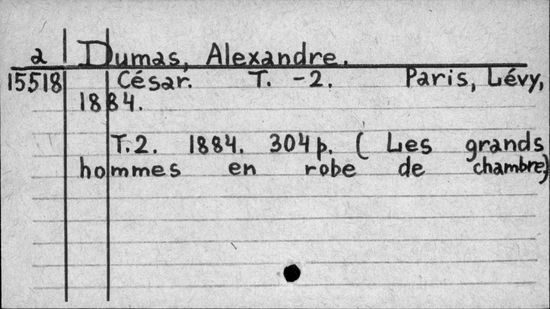 a Dumas, Alexandre.
15518 César. T. -2. Paris, Lévy,
1884.
T.2. 1884. 304 p. (Les grands
hommes en robe de chambre)